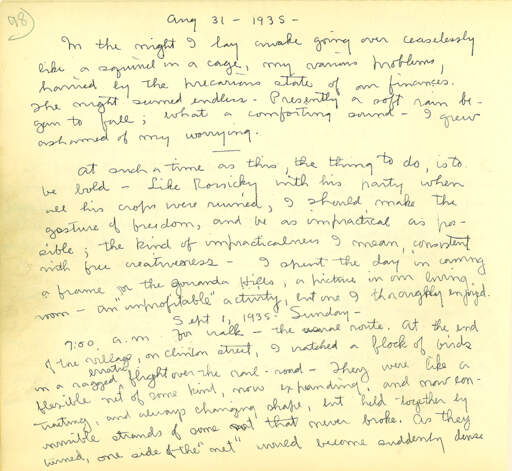 98
Aug 31 - 1935 -
In the night I lay awake going over ceaselessly
like a squirrel in a cage, my various problems,
harried by the precarious state of our finances.
The night seemed endless. Presently a soft rain be-
gan to fall; what a comforting sound - I grew
ashamed of my worrying.
At such a time as this, the thing to do, is to
be bold - Like Rosicky with his party when
all his crops were ruined, I should make the
gesture of freedom, and be as impractical as pos-
sible; the kind of impracticalness I mean, consistent
with free creativeness - I spent the day in carving
a frame for the Gowanda Hills, a picture in our living
room - an "unprofitable" activity, but one I thoroughly enjoyed.
Sept 1, 1935 - Sunday -
7:00 a.m. for walk - the usual route. At the end
of the village, on Clinton street, I watched a flock of birds
in a ragged erratic flight over the rail-road - They were like a
flexible net of some kind, now expanding, and now con-
tracting, and always changing shape, but held together by
invisible strands of some sort that never broke. As they
turned, one side of the "net" would become suddenly dense